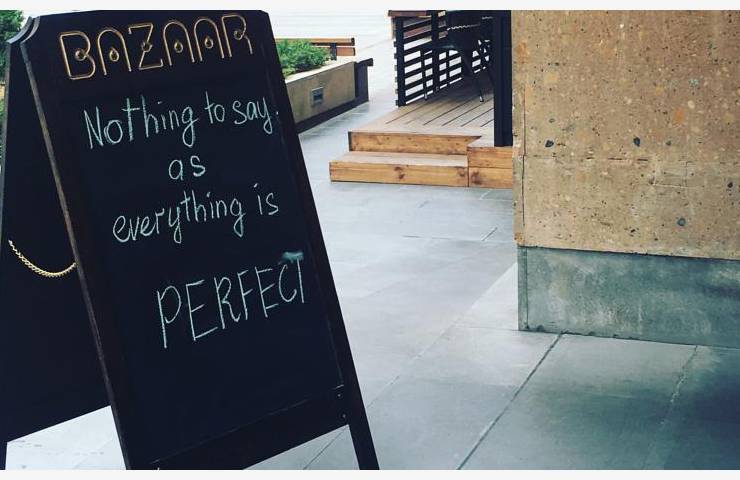 BAZAAR
Nothing to say
as
everything is
PERFECT